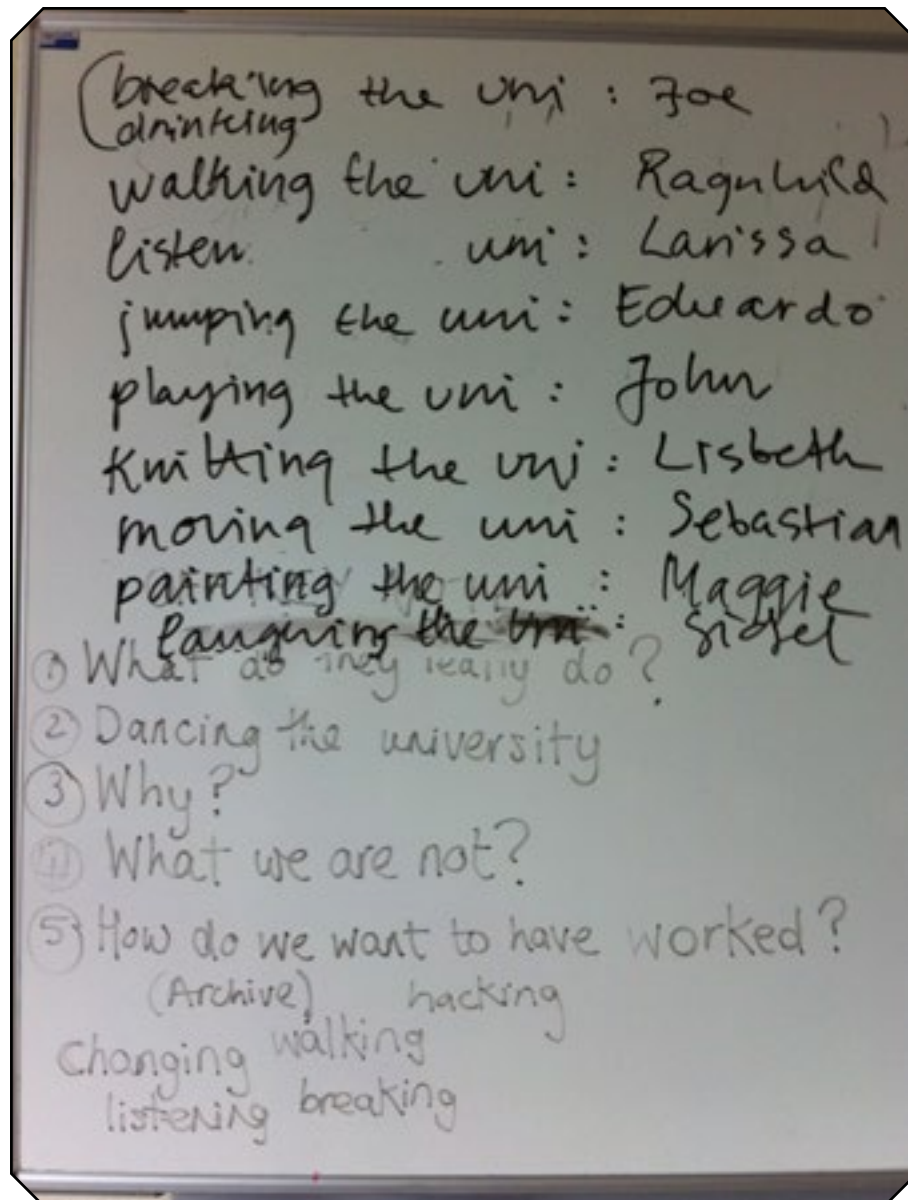 breaking the uni : Joe
drinking
walking the uni : Ragnhild
listen uni : Larissa
jumping the uni : Eduardo
playing the uni : John
Knitting the uni : Lisbeth
moving the uni : Sebastian
painting the uni : Maggie
laughing the uni : Sidsel
① What do they really do?
② Dancing the university
③ Why?
④ What we are not?
⑤ How do we want to have worked?
(Archive) hacking
Changing walking
listening breaking